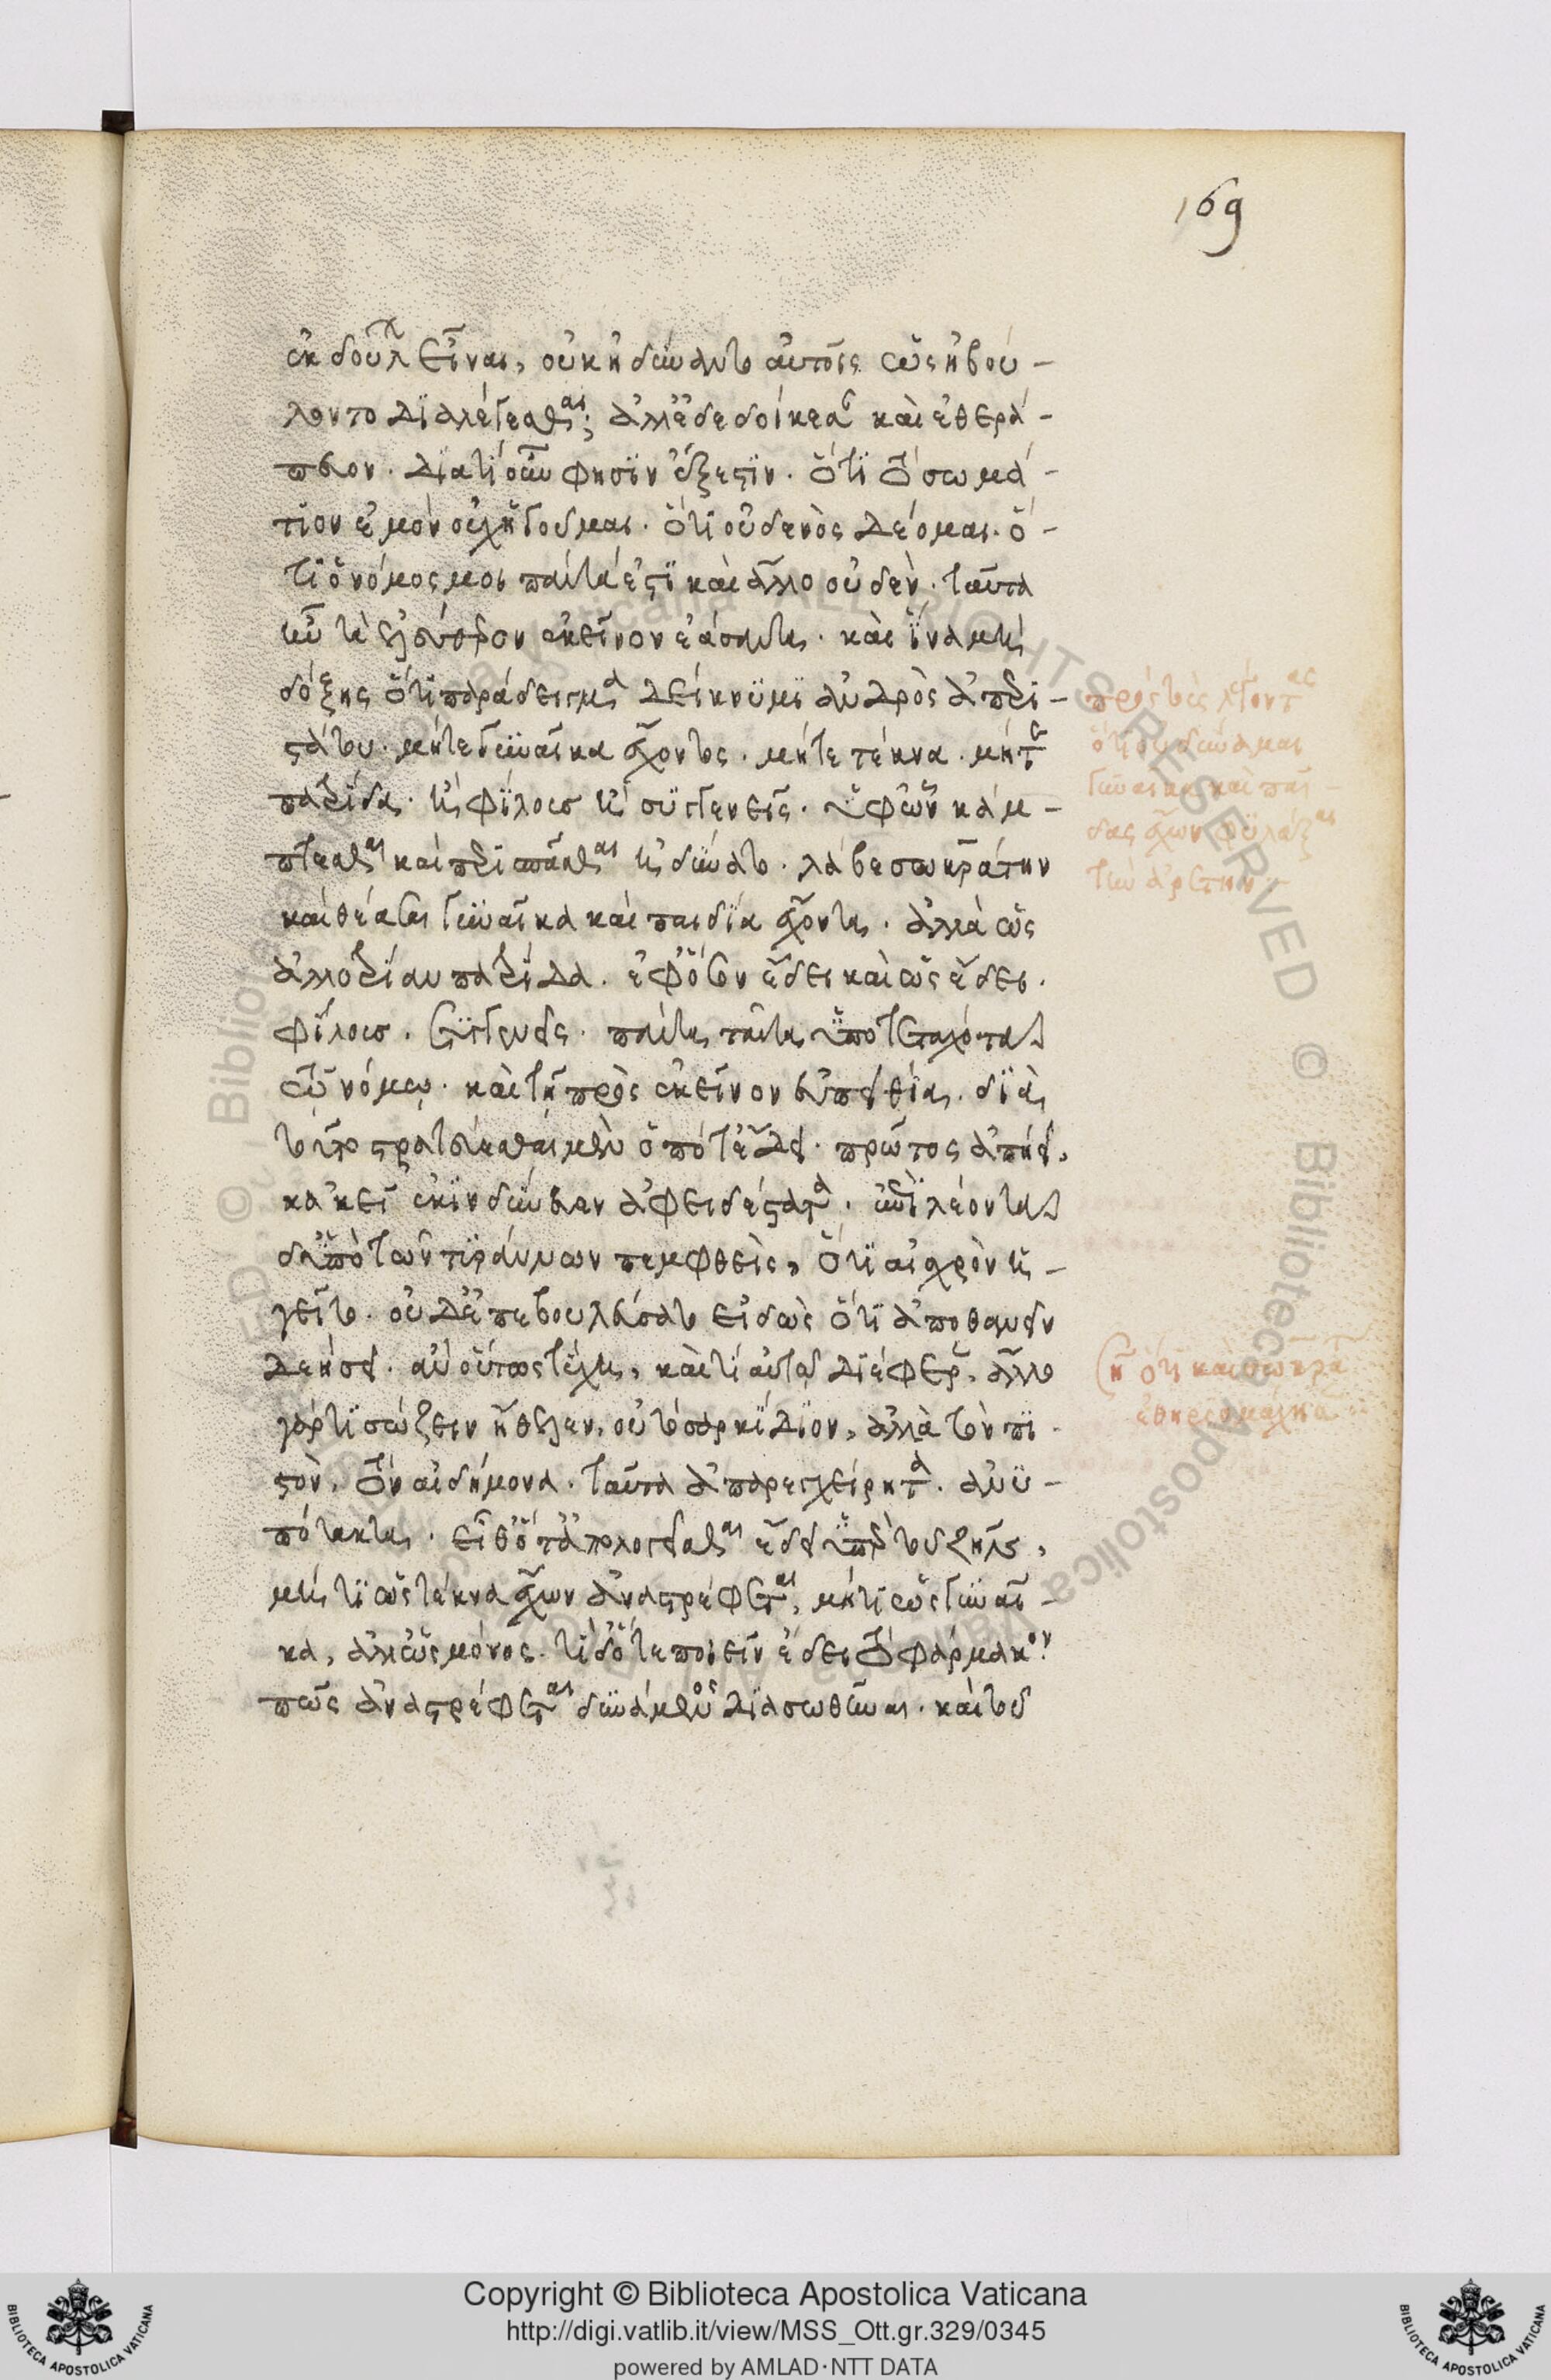 169
ἐκ δούλων εἶναι, οὐκ ἠδύναντο αὐτοῖς ὡς ἠβού-
λοντο διαλέγεσθαι; ἀλλ' ἐδεδοίκεσαν καὶ ἐθερά-
πευον. διατί οὖν φησὶν ἔξεστιν. ὅτι τὸ σωμά-
τιον ἐμὸν οὐχ ἡγοῦμαι. ὅτι οὐδενὸς δέομαι. ὅ-
τι ὁ νόμος μοι πάντα ἐστὶ καὶ ἄλλο οὐδέν. ταῦτα
ἦν τὰ ἐλεύθερον ἐκεῖνον ἐάσαντα. καὶ ἵνα μὴ
δόξῃς ὅτι παράδειγμα δείκνυμι ἀνδρὸς ἀπερι-
στάτου. μήτε γυναῖκα ἔχοντος. μήτε τέκνα. μήτε
πατρίδα. ἢ φίλους ἢ συγγενεῖς. ὑφ' ὧν κάμ-
πτεσθαι καὶ περισπᾶσθαι ἠδύνατο. λάβε σωκράτην
καὶ θέασαι γυναῖκα καὶ παιδία ἔχοντα. ἀλλὰ ὡς
ἀλλότρια πατρίδα. ἐφ' ὅσον ἔδει καὶ ὡς ἔδει.
φίλους. συγγενεῖς. πάντα ταῦτα ὑποτεταχότα
τῷ νόμῳ. καὶ τῇ πρὸς ἐκεῖνον εὐπειθείᾳ. διὰ
τοῦτο στρατεύεσθαι μὲν ὁπότ' ἔδει. πρῶτος ἀπῄει.
κἀκεῖ ἐκινδύνευεν ἀφειδέστατα. ἐπὶ λέοντα
δ' ὑπὸ τῶν τυράννων πεμφθείς, ὅτι αἰσχρὸν ἡ-
γεῖτο. οὐδ' ἐπεβουλεύσατο εἰδὼς ὅτι ἀποθανεῖν
δεήσει. ἂν οὕτως τύχῃ, καὶ τί αὐτῷ διέφερεν, ἄλλο
γάρ τι σώζειν ἤθελεν, οὐ τὸ σαρκίδιον, ἀλλὰ τὸν πι-
στὸν, τὸν αἰδήμονα. ταῦτα ἀπαρεγχείρητα. ἀνυ-
πότακτα. εἶθ' ὅτ' ἀπολογεῖσθαι ἔδει ὑπὲρ τοῦ ζῆν,
μή τι ὡς τέκνα ἔχων ἀναστρέφεται, μή τι ὡς γυναῖ-
κα, ἀλλ' ὡς μόνος. τί δ' ὅτε ποιεῖν ἔδει τὸ φάρμακον.
πῶς ἀναστρέφεται δυνάμενος διασωθῆναι. καὶ τοῦ
πρὸς τοὺς λέγοντας
ὅτι οὐ δύναμαι
γυναῖκα καὶ παῖ-
δας ἔχων φυλάξαι
τὴν ἀρετήν
ὅτι καὶ σωκρά
Copyright © Biblioteca Apostolica Vaticana
http://digi.vatlib.it/view/MSS_Ott.gr.329/0345
powered by AMLAD·NTT DATA